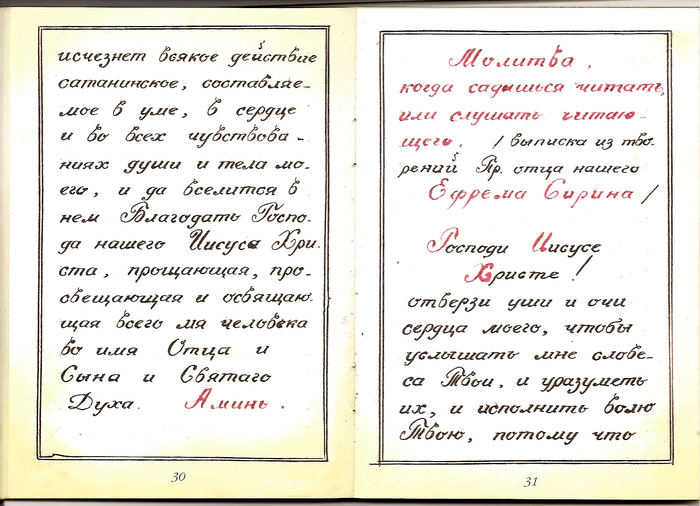 исчезнет всякое действие
сатанинское, составляе-
мое в уме, в сердце
и во всех чувствова-
ниях души и тела мо-
его, и да вселится в
нем Благодать Госпо-
да нашего Иисуса Хри-
ста, прощающая, про-
свещающая и освящаю-
щая всего мя человека
во имя Отца и
Сына и Святаго
Духа. Аминь.
30
Молитва,
когда садишься читать,
или слушать читаю-
щего. /выписка из тво-
рений Пр. отца нашего
Ефрема Сирина/
Господи Иисусе
Христе!
отверзи уши и очи
сердца моего, чтобы
услышать мне слове-
са Твои, и уразуметь
их, и исполнить волю
Твою, потому что
31